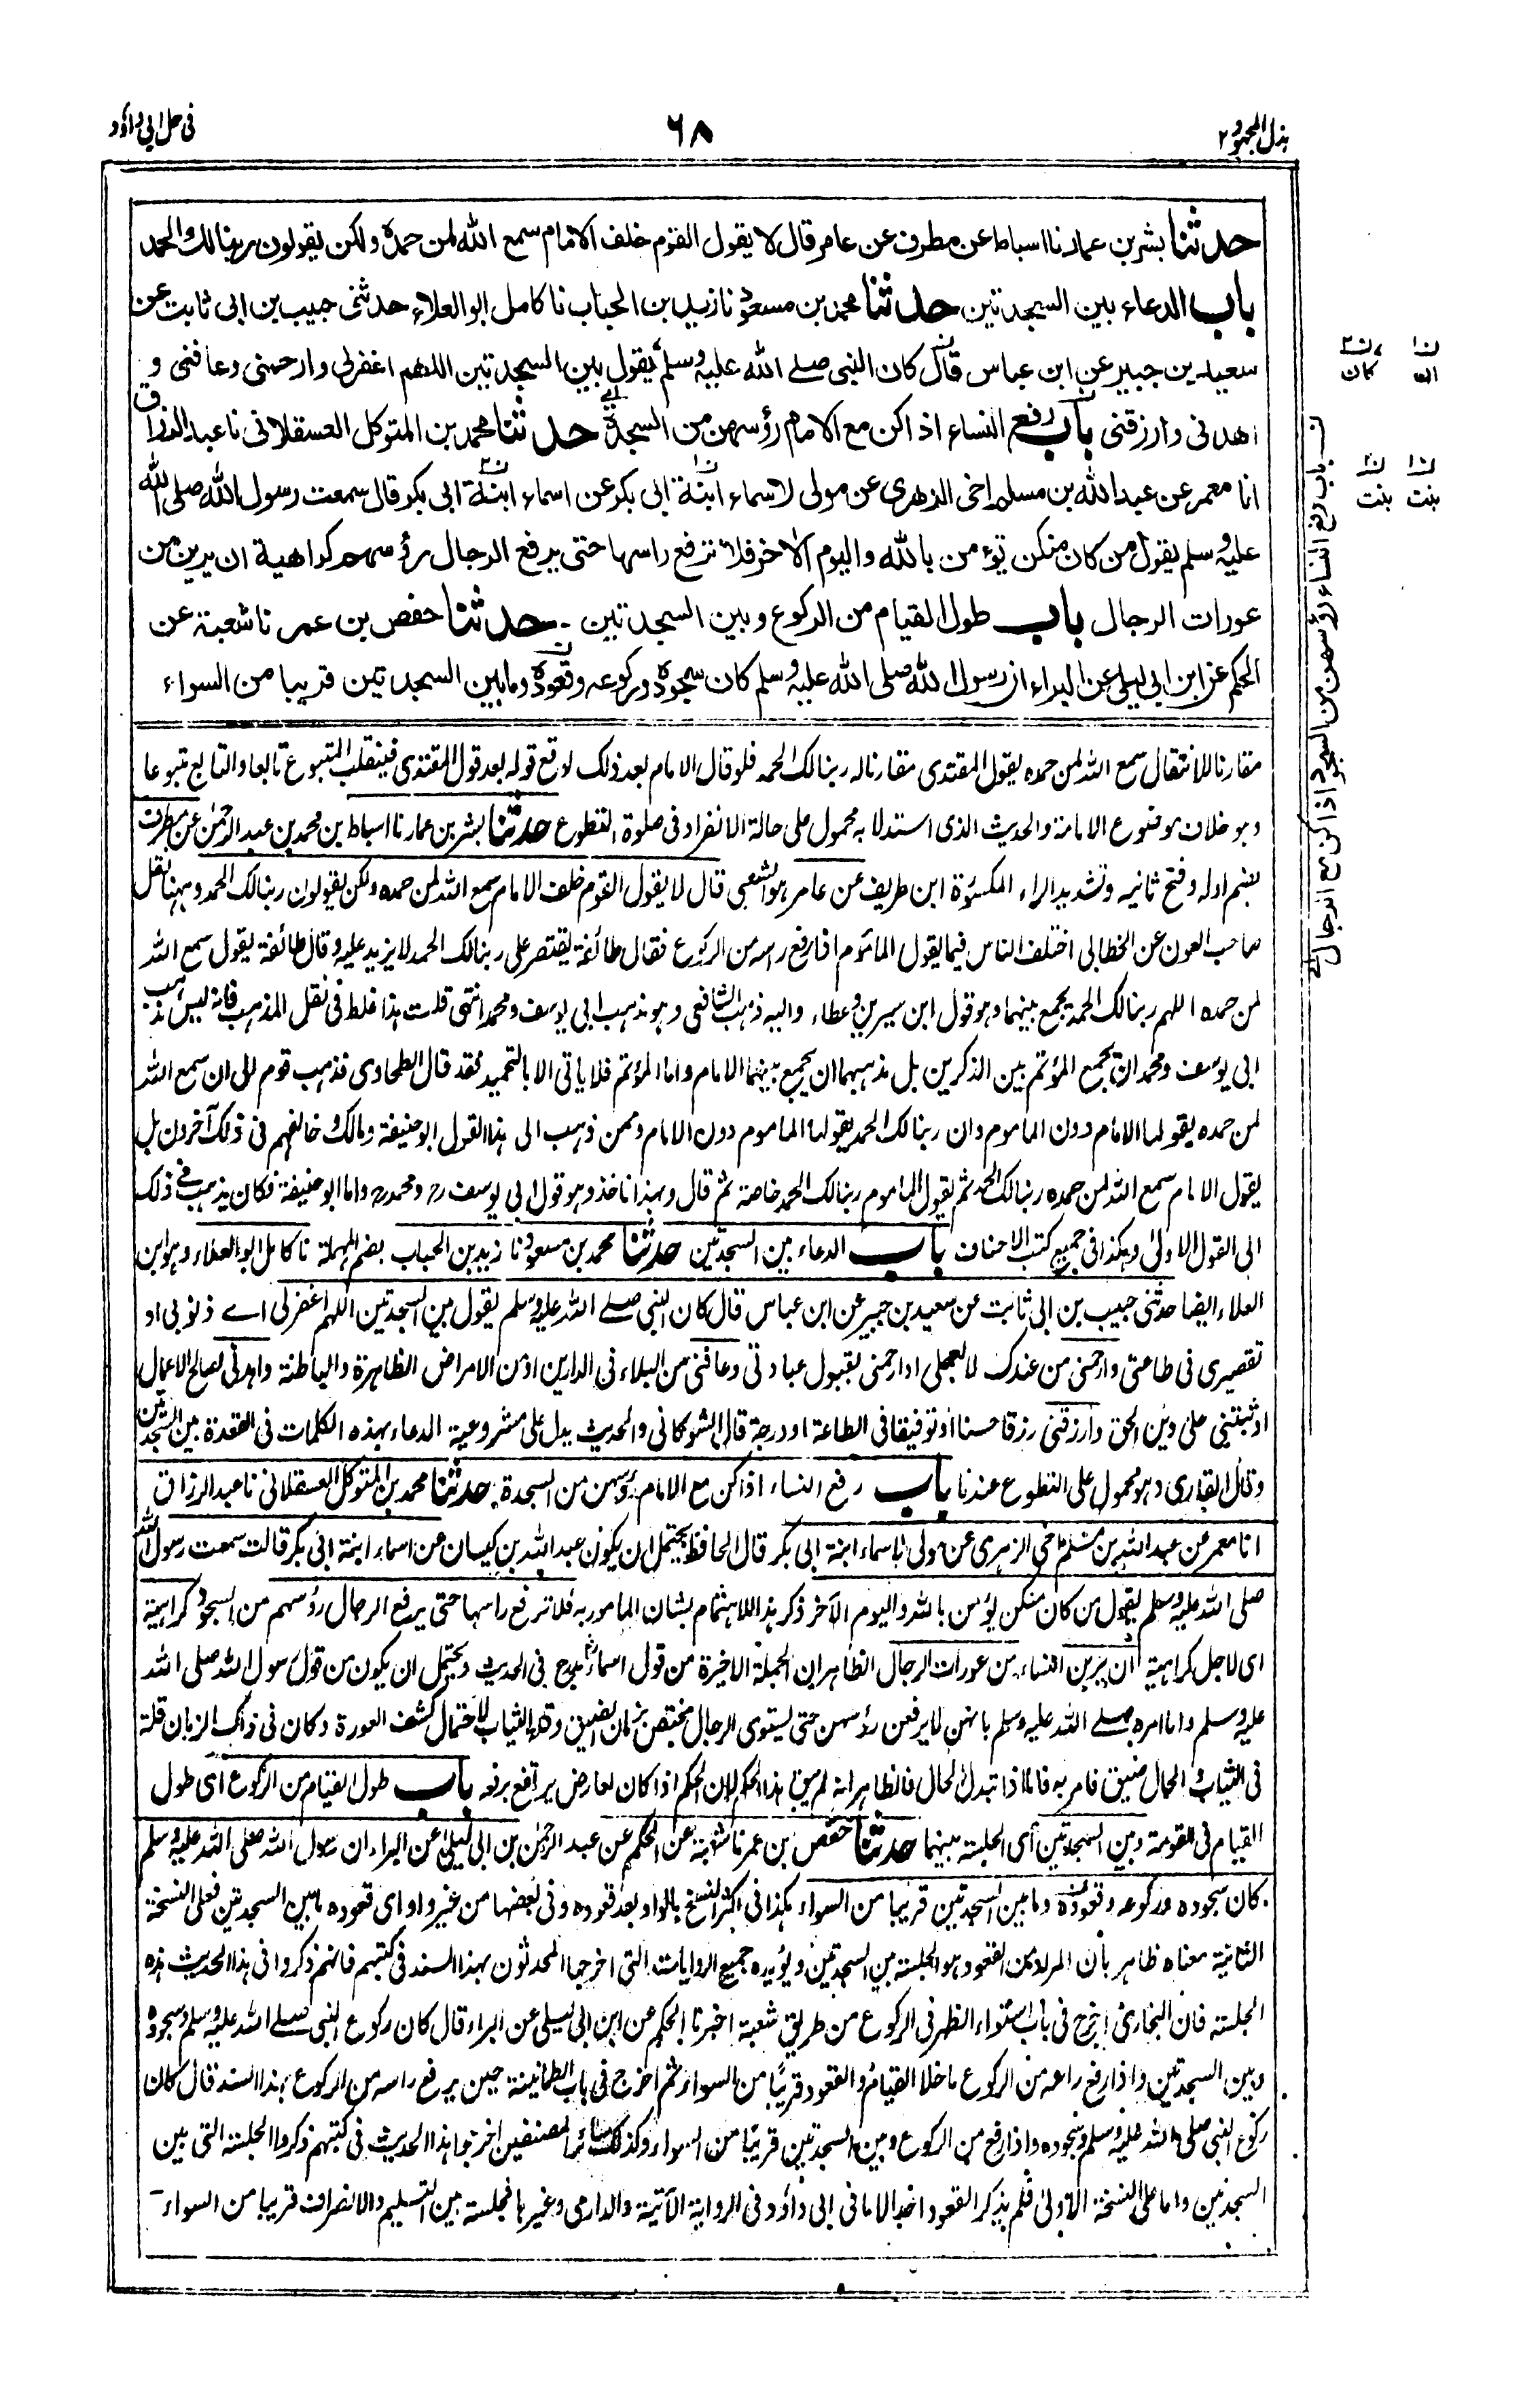 بذل المجهود ٢
٦٨
في حل ابي داؤد
حدثنا بشر بن عمار نا اسباط عن مطرف عن عامر قال لا يقول القوم خلف الامام سمع الله لمن حمده ولكن يقولون ربنا لك الحمد
باب الدعاء بين السجدتين حدثنا محمد بن مسعود نا زيد بن الحباب نا كامل ابو العلاء حدثني حبيب بن ابي ثابت عن
سعيد بن جبير عن ابن عباس قال كان النبي صلى الله عليه وسلم يقول بين السجدتين اللهم اغفر لي وارحمني وعافني و
اهدني وارزقني باب رفع النساء اذا كن مع الامام رؤسهن من السجدة حدثنا محمد بن المتوكل العسقلاني نا عبد الرزاق
انا معمر عن عبد الله بن مسلم اخي الزهري عن مولى لاسماء ابنة ابي بكر عن اسماء ابنة ابي بكر قال سمعت رسول الله صلى الله
عليه وسلم يقول من كان منكن تؤمن بالله واليوم الاخر فلا ترفع راسها حتى يرفع الرجال رؤسهم كراهية ان يرين من
عورات الرجال باب طول القيام من الركوع وبين السجدتين - حدثنا حفص بن عمر نا شعبة عن
الحكم عن ابن ابي ليلى عن البراء ان رسول الله صلى الله عليه وسلم كان سجوده وركوعه وقعوده وما بين السجدتين قريبا من السواء
ن١ ن٢
اله كان
ن١ ن٢
بنت بنت
ن باب رفع النساء رؤسهن من السجود اذا كن مع الرجال
مقارنا للانتقال سمع الله لمن حمده يقول المقتدي مقارنا له ربنا لك الحمد فلو قال الامام بعد ذلك لوقع قوله بعد قول المقتدي فينقلب المتبوع تابعا والتابع متبوعا
وهو خلاف موضوع الامامة والحديث الذي استدلا به محمول على حالة الانفراد في صلوة التطوع حدثنا بشر بن عمار نا اسباط بن محمد بن عبد الرحمن عن مطرف
بضم اوله وفتح ثانيه وتشديد الراء المكسورة ابن طريف عن عامر هو الشعبي قال لا يقول القوم خلف الامام سمع الله لمن حمده ولكن يقولون ربنا لك الحمد وههنا نقل
صاحب العون عن الخطابي اختلف الناس فيما يقول الماموم اذا رفع راسه من الركوع فقال طائفة يقتصر على ربنا لك الحمد لا يزيد عليه وقال طائفة يقول سمع الله
لمن حمده اللهم ربنا لك الحمد يجمع بينهما وهو قول ابن سيرين وعطاء واليه ذهب الشافعي وهو مذهب ابي يوسف ومحمد انتهى قلت هذا غلط في نقل المذهب فانه ليس مذهب
ابي يوسف ومحمد ان يجمع المؤتم بين الذكرين بل مذهبهما ان يجمع بينهما الامام واما المؤتم فلا ياتي الا بالتحميد فقد قال الطحاوي فذهب قوم الى ان سمع الله
لمن حمده يقولها الامام دون الماموم وان ربنا لك الحمد يقولها الماموم دون الامام وممن ذهب الى هذا القول ابو حنيفة ومالك وخالفهم في ذلك آخرون بل
يقول الامام سمع الله لمن حمده ربنا لك الحمد ثم يقول الماموم ربنا لك الحمد خاصة ثم قال وبهذا ناخذ وهو قول ابي يوسف رح ومحمد رح واما ابو حنيفة فكان يذهب في ذلك
الى القول الاولى وهكذا في جميع كتب الاحناف باب الدعاء بين السجدتين حدثنا محمد بن مسعود نا زيد بن الحباب بضم المهملة نا كامل ابو العلاء وهو ابن
العلاء ايضا حدثني حبيب بن ابي ثابت عن سعيد بن جبير عن ابن عباس قال كان النبي صلى الله عليه وسلم يقول بين السجدتين اللهم اغفر لي اے ذنوبي او
تقصيري في طاعتي وارحمني من عندك لا لعملي او ارحمني بقبول عبادتي وعافني من البلاء في الدارين او من الامراض الظاهرة والباطنة واهدني لصالح الاعمال
او ثبتني على دين الحق وارزقني رزقا حسنا او توفيقا في الطاعة او درجة قال الشوكاني والحديث يدل على مشروعية الدعاء بهذه الكلمات في القعدة بين السجدتين
وقال القاري وهو محمول على التطوع عندنا باب رفع النساء اذا كن مع الامام رؤسهن من السجدة حدثنا محمد بن المتوكل العسقلاني نا عبد الرزاق
انا معمر عن عبد الله بن مسلم اخي الزهري عن مولى لاسماء ابنة ابي بكر قال الحافظ يحتمل ان يكون عبد الله بن كيسان عن اسماء ابنة ابي بكر قالت سمعت رسول الله
صلى الله عليه وسلم يقول من كان منكن يؤمن بالله واليوم الآخر ذكر هذا للاهتمام بشان المامور به فلا ترفع راسها حتى يرفع الرجال رؤسهم من السجود كراهية
اي لاجل كراهية ان يرين النساء من عورات الرجال الظاهر ان الجملة الاخيرة من قول اسماء مدرج في الحديث ويحتمل ان يكون من قول رسول الله صلى الله
عليه وسلم واما امره صلى الله عليه وسلم بانهن لا يرفعن رؤسهن حتى يستوي الرجال مختص بزمان الضيق وقلة الثياب لاحتمال كشف العورة وكان في ذلك الزمان قلة
في الثياب والحال ضيق فامر به فاما اذا تبدل الحال فالظاهر انه لم يبق هذا الحكم لان الحكم اذا كان لعارض يرتفع برفعه باب طول القيام من الركوع اي طول
القيام في القومة وبين السجدتين اي الجلسة بينهما حدثنا حفص بن عمر نا شعبة عن الحكم عن عبد الرحمن بن ابي ليلى عن البراء ان رسول الله صلى الله عليه وسلم
كان سجوده وركوعه وقعوده وما بين السجدتين قريبا من السواء هكذا في اكثر النسخ بالواو بعد قعوده وفي بعضها من غير واو اي قعوده ما بين السجدتين فعلى النسخة
الثانية معناه ظاهر بان المراد من القعود هو الجلسة بين السجدتين ويؤيده جميع الروايات التي اخرجها المحدثون بهذا السند في كتبهم فانهم ذكروا في هذا الحديث هذه
الجلسة فان البخاري اخرج في باب استواء الظهر في الركوع من طريق شعبة اخبرنا الحكم عن ابن ابي ليلى عن البراء قال كان ركوع النبي صلى الله عليه وسلم وسجوده
وبين السجدتين واذا رفع راسه من الركوع ما خلا القيام والقعود قريبا من السواء ثم اخرج في باب الطمانينة حين يرفع راسه من الركوع بهذا السند قال كان
ركوع النبي صلى الله عليه وسلم وسجوده واذا رفع من الركوع وبين السجدتين قريبا من السواء وكذلك سائر المصنفين اخرجوا هذا الحديث في كتبهم ذكروا الجلسة التي بين
السجدتين واما على النسخة الاولى فلم يذكر القعود احد الا ما في ابي داؤد في الرواية الآتية والدارمي وغيرها فجلسة بين التسليم والانصراف قريبا من السواء -